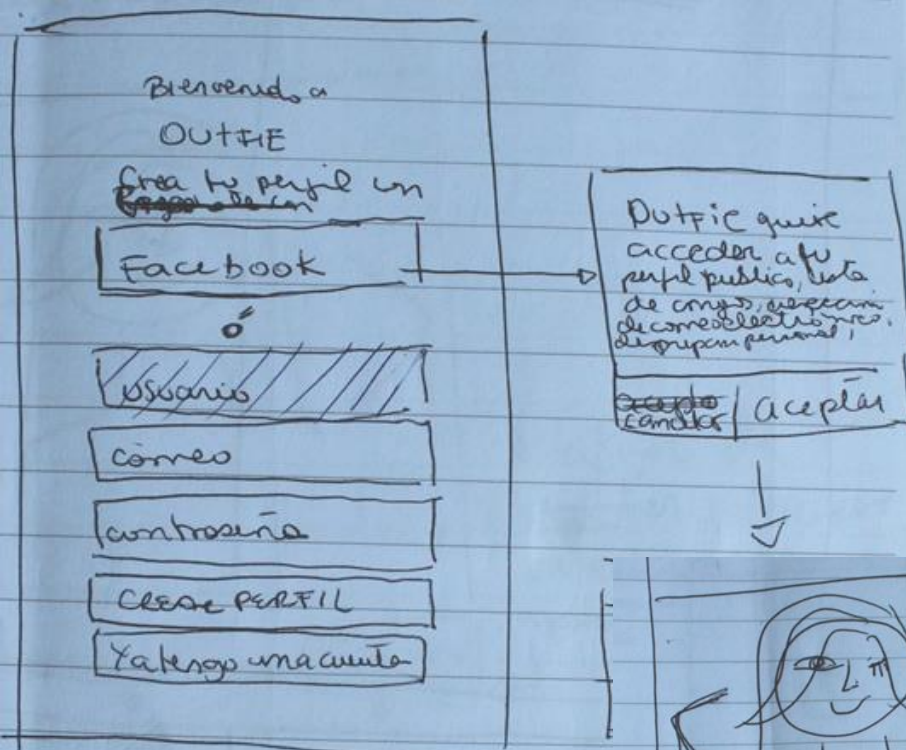 Bienvenido a
OUTFIE
Crea tu perfil con
Facebook
ó
usuario
correo
contraseña
CREAR PERFIL
Ya tengo una cuenta
Outfie quire
acceder a tu
perfil publico, lista
de
de correo electrónico,
personal,
cancelar aceptar